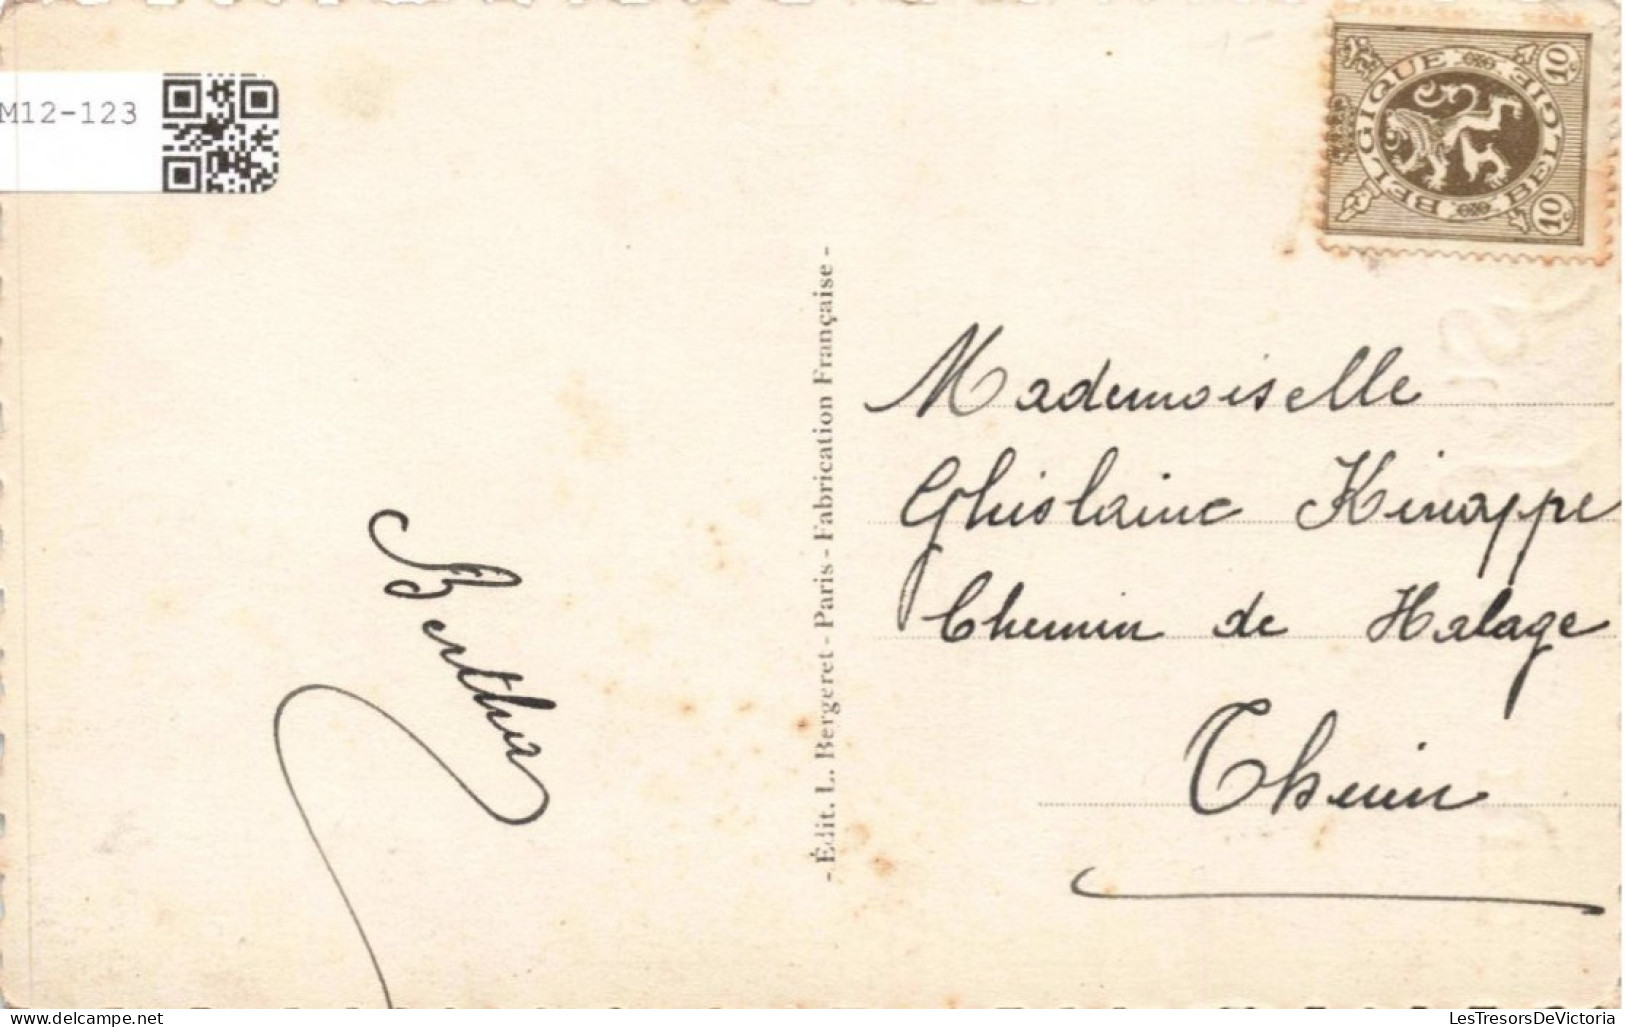 M12-123
BELGIQUE BELGIË
10c
10c
- Édit. L. Bergeret - Paris - Fabrication Française -
Mademoiselle
Ghislaine Kinappe
Chemin de Halage
Thuin
Bertha
www.delcampe.net
LesTresorsDeVictoria